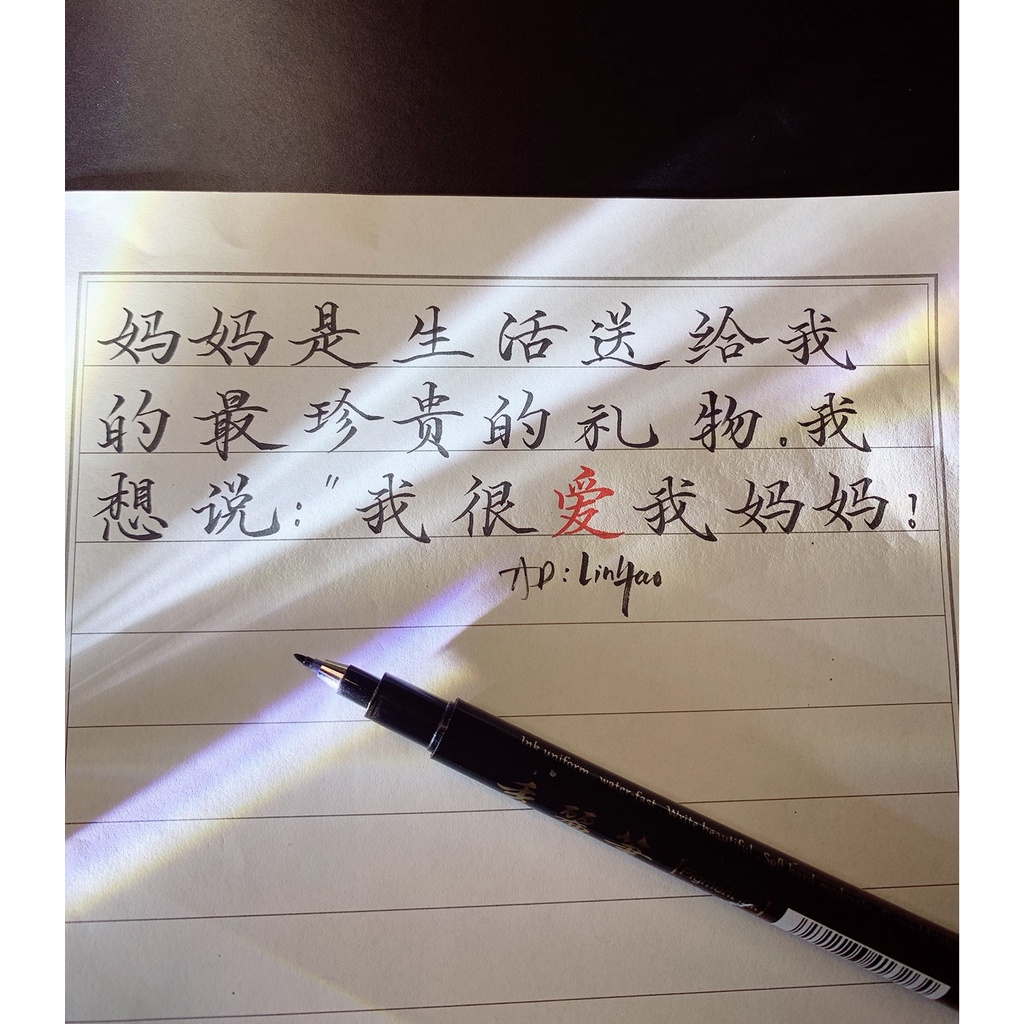 妈妈是生活送给我
的最珍贵的礼物.我
想说:"我很爱我妈妈!
Linyao
Ink uniform water fast Write beautiful Soft
秀麗筆